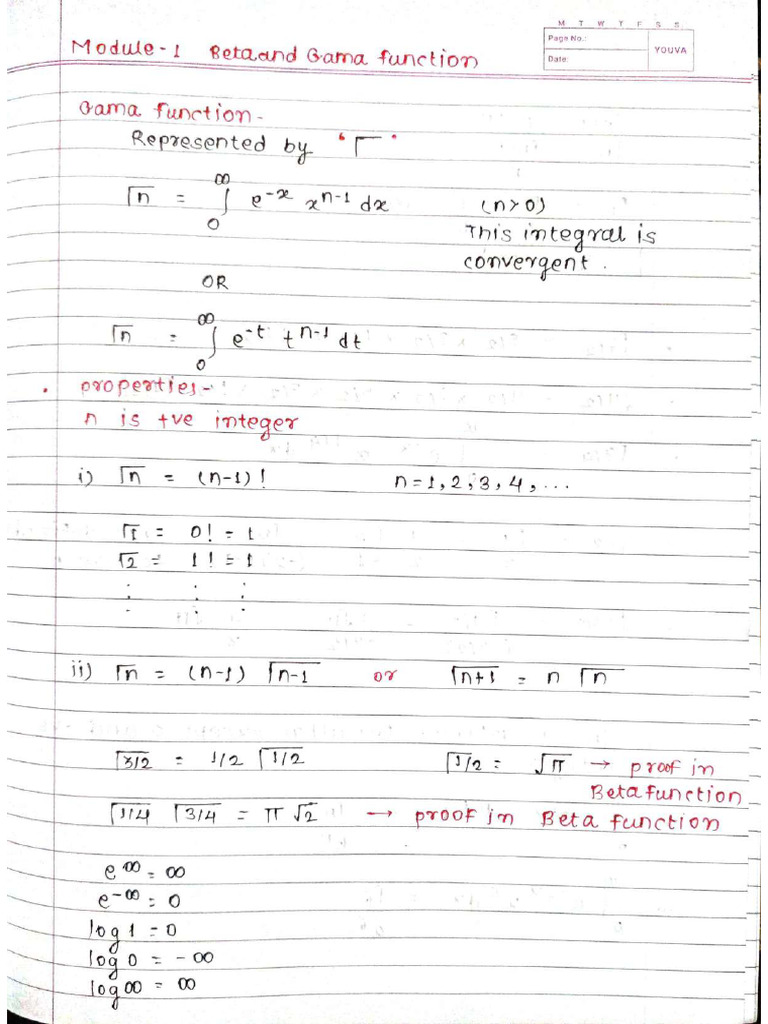 M T W T F S S
Page No.:
YOUVA
Date:
Module-1 Beta and Gama function
Gama function-
Represented by "Γ"
Γn = ∫₀^∞ e^-x x^n-1 dx (n>0)
This integral is
convergent.
OR
Γn = ∫₀^∞ e^-t t^n-1 dt
. properties-
n is +ve integer
i) Γn = (n-1)! n=1,2,3,4,...
Γ1 = 0! = 1
Γ2 = 1! = 1
. . .
. . .
ii) Γn = (n-1) Γn-1 or Γn+1 = n Γn
Γ3/2 = 1/2 Γ1/2 Γ1/2 = √π → proof in
Beta function
Γ1/4 Γ3/4 = π√2 → proof in Beta function
e^∞ = ∞
e^-∞ = 0
log 1 = 0
log 0 = -∞
log ∞ = ∞